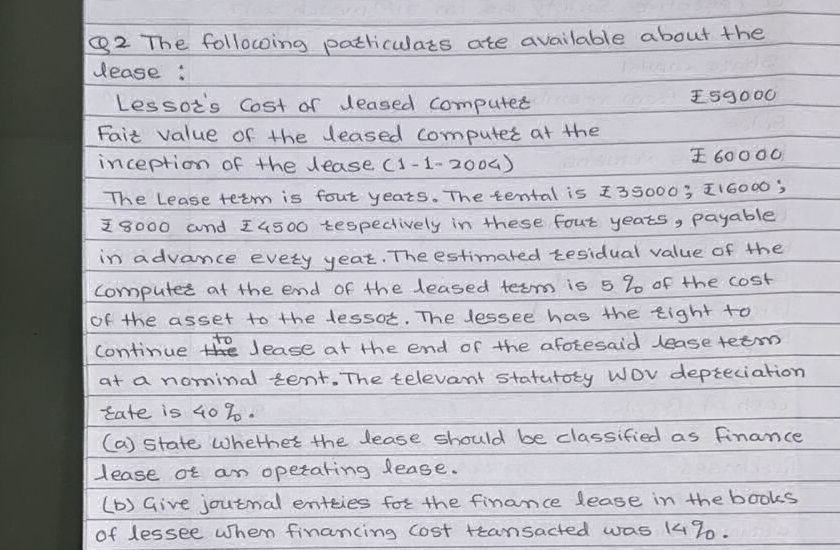 Q2 The following particulars are available about the
lease :
Lessor's Cost of leased computer ₹59000
Fair value of the leased computer at the
inception of the lease (1-1-2004) ₹60000
The Lease term is four years. The rental is ₹35000; ₹16000;
₹8000 and ₹4500 respectively in these four years, payable
in advance every year. The estimated residual value of the
computer at the end of the leased term is 5% of the cost
of the asset to the lessor. The lessee has the right to
continue to lease at the end of the aforesaid lease term
at a nominal rent. The relevant statutory WDV depreciation
rate is 40%.
(a) State whether the lease should be classified as finance
lease or an operating lease.
(b) Give journal entries for the finance lease in the books
of lessee when financing cost transacted was 14%.